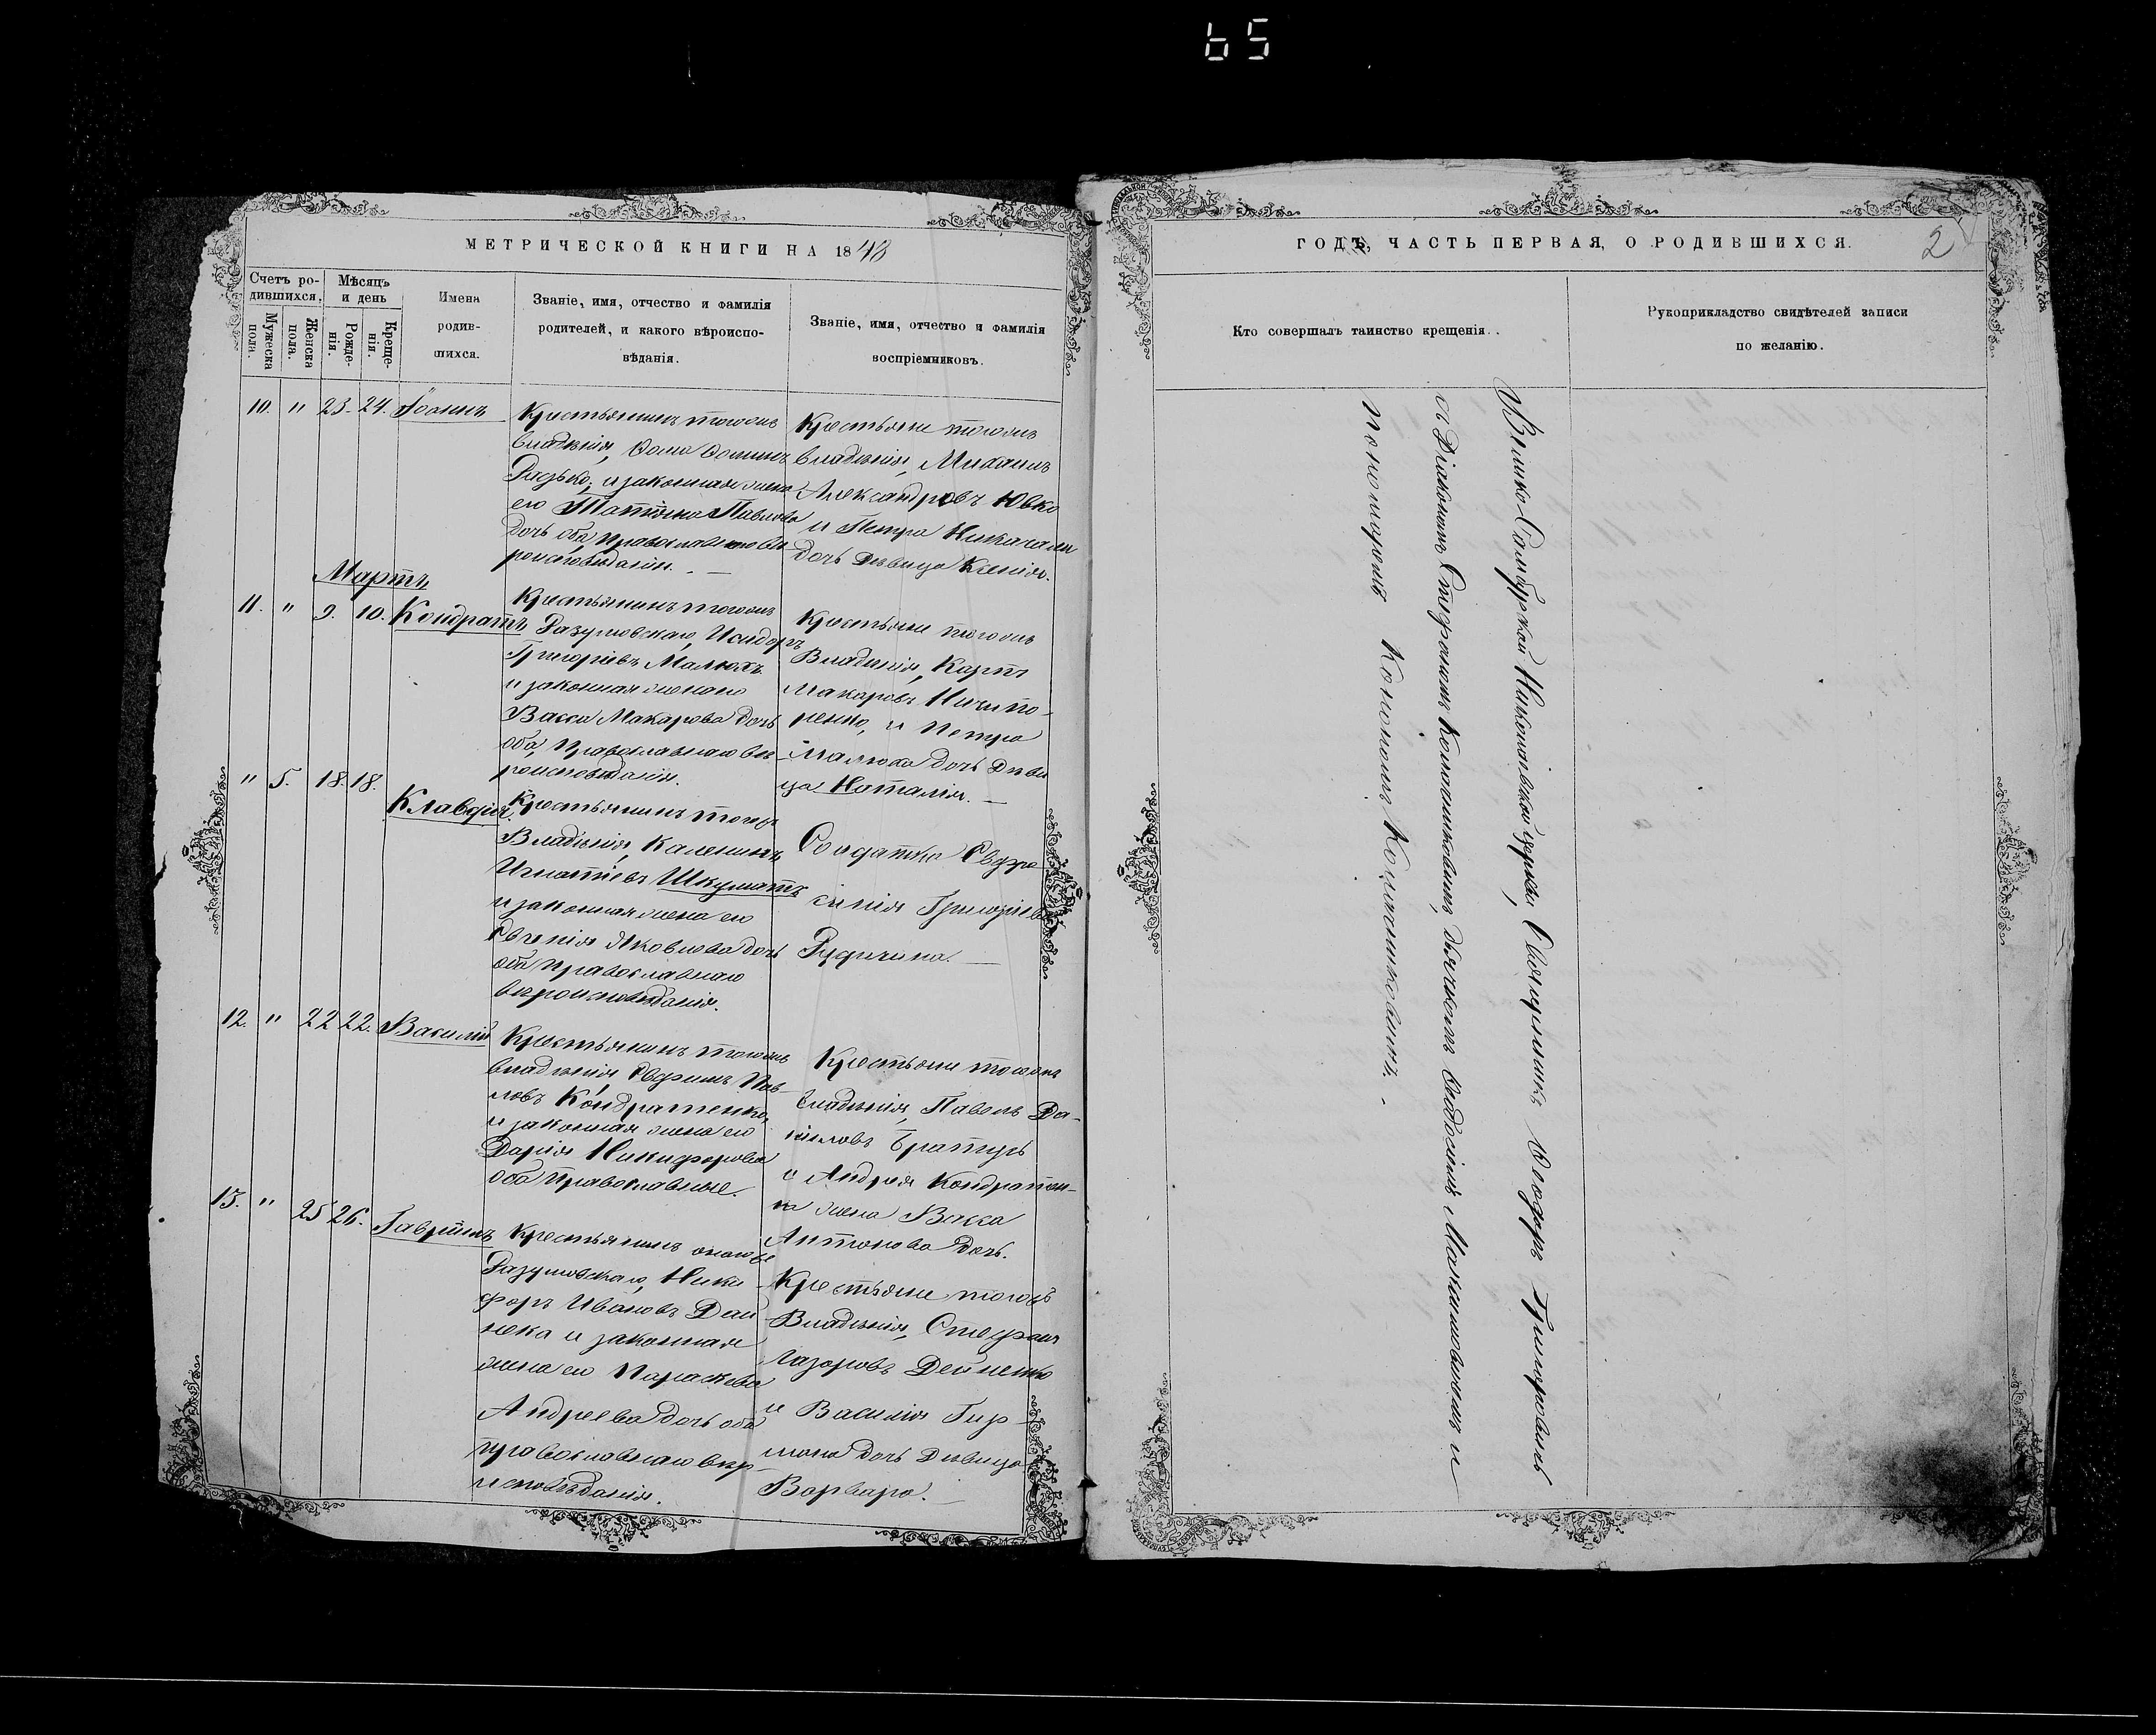 65
МЕТРИЧЕСКОЙ КНИГИ НА 1848
Счетъ ро-
дившихся.
Мужеска
пола.
Женска
пола.
Мѣсяцъ
и день
Рожде-
нія.
Креще-
нія.
Имена
родив-
шихся.
Званіе, имя, отчество и фамилія
родителей, и какого вѣроиспо-
вѣданія.
Званіе, имя, отчество и фамилія
воспріемниковъ.
10. " 23. 24. Іоаннъ
Крестьянинъ тогожъ
владѣнія, Фома Фоминъ
и законная жена
его Татіана Павлова
дочь оба православнаго вѣ-
роисповѣданія.
Крестьяне тогожъ
владѣнія, Михаилъ
Александровъ Ювко
и Петра
дочь Дѣвица Ксенія.
Мартъ
11. " 9. 10. Кондратъ
Крестьянинъ тогожъ
Разумовскаго, Исидоръ
Григоріевъ Малюхъ
и законная жена его
Васса Макарова дочь
оба, православнаго вѣ-
роисповѣданія.
Крестьяне тогожъ
Владѣнія, Карпъ
Макаровъ Ничипо-
ренко, и Петра
Малюха дочь Дѣви
ца Наталія.
" 5. 18. 18. Клавдія.
Крестьянинъ тогожъ
Владѣнія, Каленикъ
Игнатіевъ Шкуматъ
и законная жена его
Евгенія Яковлева дочь
оба православнаго
вѣроисповѣданія.
Солдатка Евдро
сінія Григоріева
12. " 22 22. Василій
Крестьянинъ тогожъ
владѣнія Ефимъ Пав-
ловъ Кондратенко,
и законная жена его
Дарія Никифорова
оба православные.
Крестьяне тогожъ
владѣнія, Павелъ Да-
ниловъ Братусь
и Андрея Кондратен-
ка жена Васса
Антонова дочь.
13. " 25 26. Гавріилъ
Крестьянинъ онаго же
Разумовскаго, Ники
форъ Ивановъ Дей
нека и законная
жена его Параскева
Андреева дочь оба
православнаго вѣр
исповѣданія.
Крестьяне тогожъ
Владѣнія, Стефанъ
Лазоровъ Дейнеко
и Василія Гир
мона дочь Дѣвица
Варвара.
ГОДЪ, ЧАСТЬ ПЕРВАЯ, О РОДИВШИХСЯ.
2
Кто совершалъ таинство крещенія.
Рукоприкладство свидѣтелей записи
по желанію.
Велико-Самбурской Николаевской церкви, Священникъ Феодоръ
съ Діакономъ Стефаномъ Колошниковымъ, дьячкомъ Феодосіемъ Максимовичемъ и
пономаремъ Конономъ